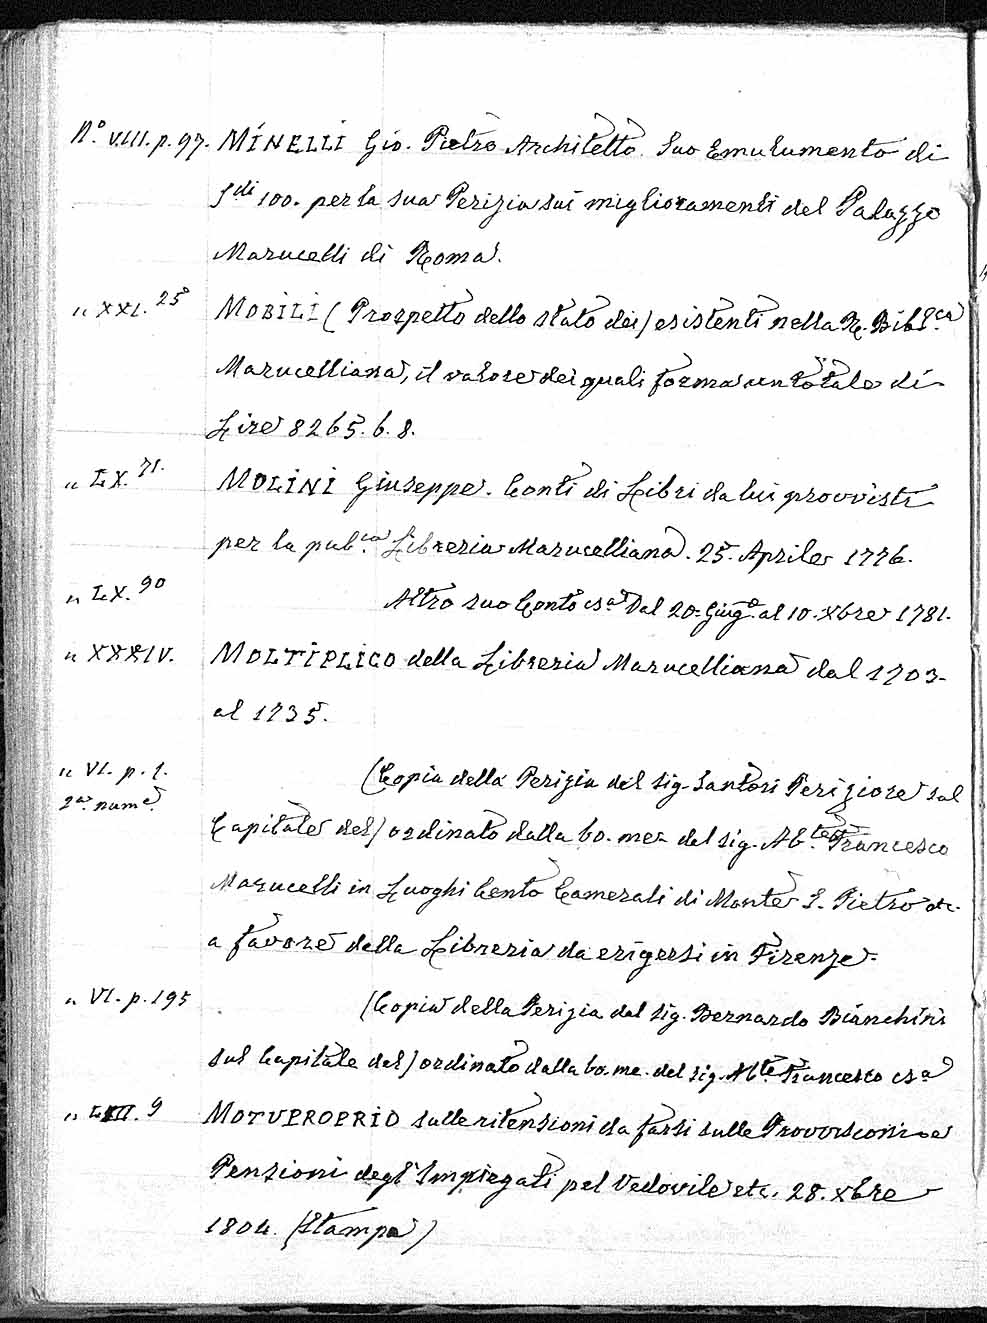 N.º VIII. p. 97. MINELLI Gio. Pietro Architetto. Suo Emulumento di
Sdi 100. per la sua Perizia sui miglioramenti del Palazzo
Marucelli di Roma.
" XXI. 25 MOBILI (Prospetto dello stato dei) esistenti nella R. Bibl.ca
Marucelliana, il valore dei quali forma un totale di
Lire 8265. 6. 8.
" LX. 71. MOLINI Giuseppe. Conti di Libri da lui provvisti
per la pub.ca Libreria Marucelliana. 25. Aprile 1776.
" LX. 90 Altro suo Conto csa Dal 20. Giug.o al 10. Xbre 1781.
" XXXIV. MOLTIPLICO della Libreria Marucelliana dal 1703-
al 1735.
" VI. p. 1. (Copia della Perizia del sig. Santori Periziore sul
2a num.e
Capitale del) ordinato dalla bo. me. del sig. Ab.te Francesco
Marucelli in Luoghi Cento Camerali di Monte S. Pietro etc.
a favore della Libreria da erigersi in Firenze.
" VI. p. 195 (Copia della Perizia del sig. Bernardo Bianchini
sul Capitale del) ordinato dalla bo. me. del sig. Ab.te Francesco csa
9 MOTUPROPRIO sulle ritenzioni da farsi sulle Provvisioni e
Pensioni degl' Impiegati pel Vedovile etc. 28. Xbre
1804. (Stampa)